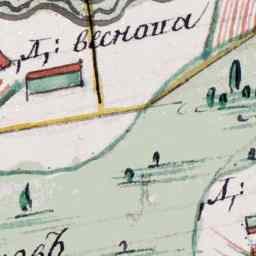 Д: весноша
Д:
овъ